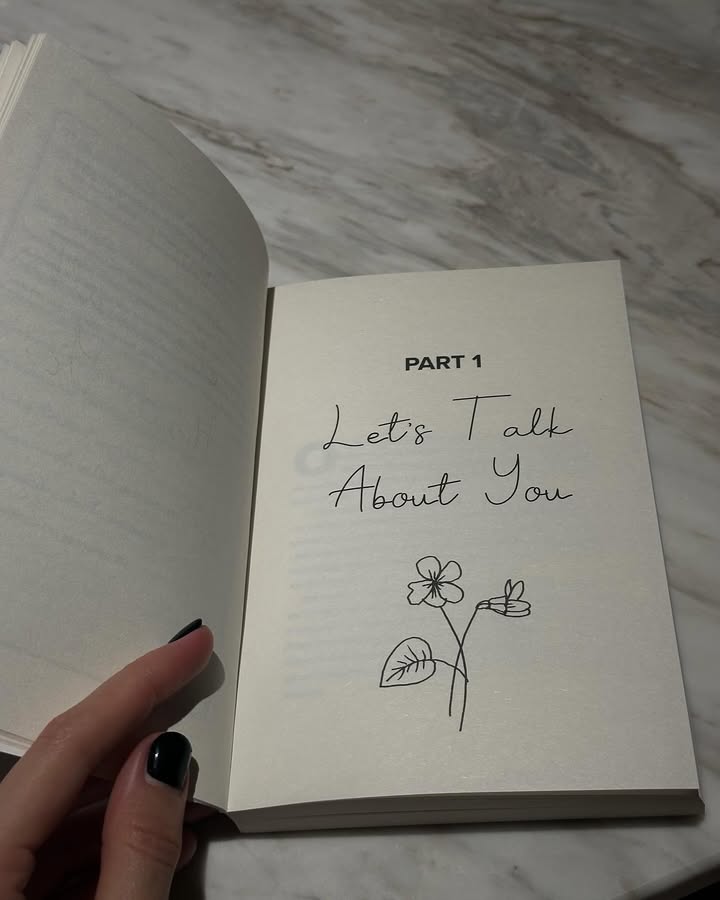 PART 1
Let's Talk
About You